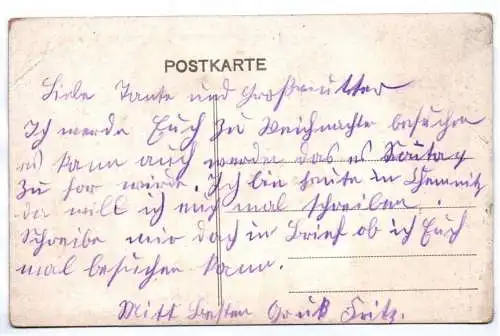 POSTKARTE
Liebe Tante und Großmutter
Ich werde Euch zu Weichnachte besuchen
es kann auch werden das es Sontag
zu for wirde. Ich bin heute in Chemnitz
da will ich euch mal schreiben.
Schreibe mir doch in Brief ob ich Euch
mal besuchen kann.
Mitt besten Gruß Fritz.